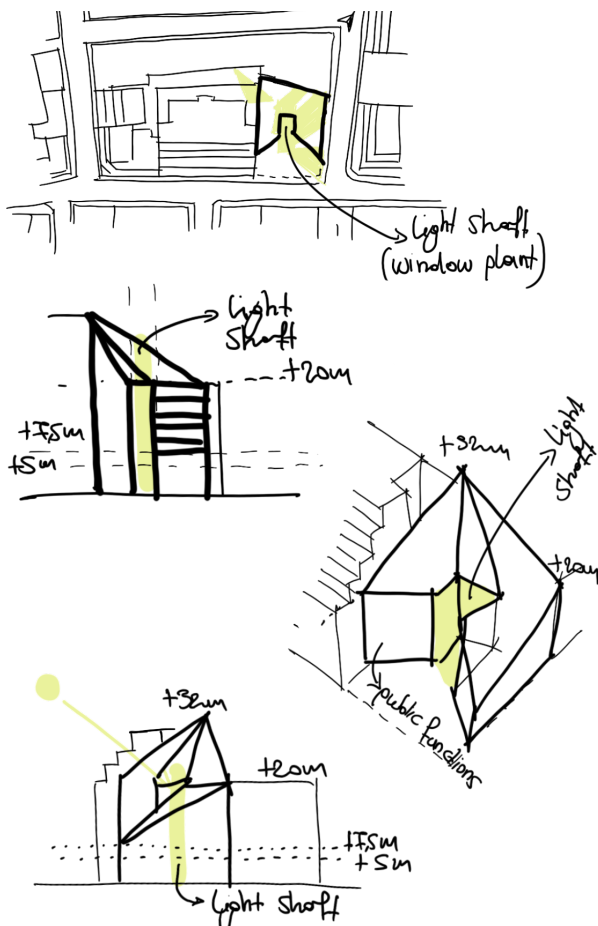 light shaft
(window plant)
light
shaft
+20m
+7,5m
+5m
+32m
light
shaft
+20m
public functions
+32m
+20m
+7,5m
+5m
light shaft